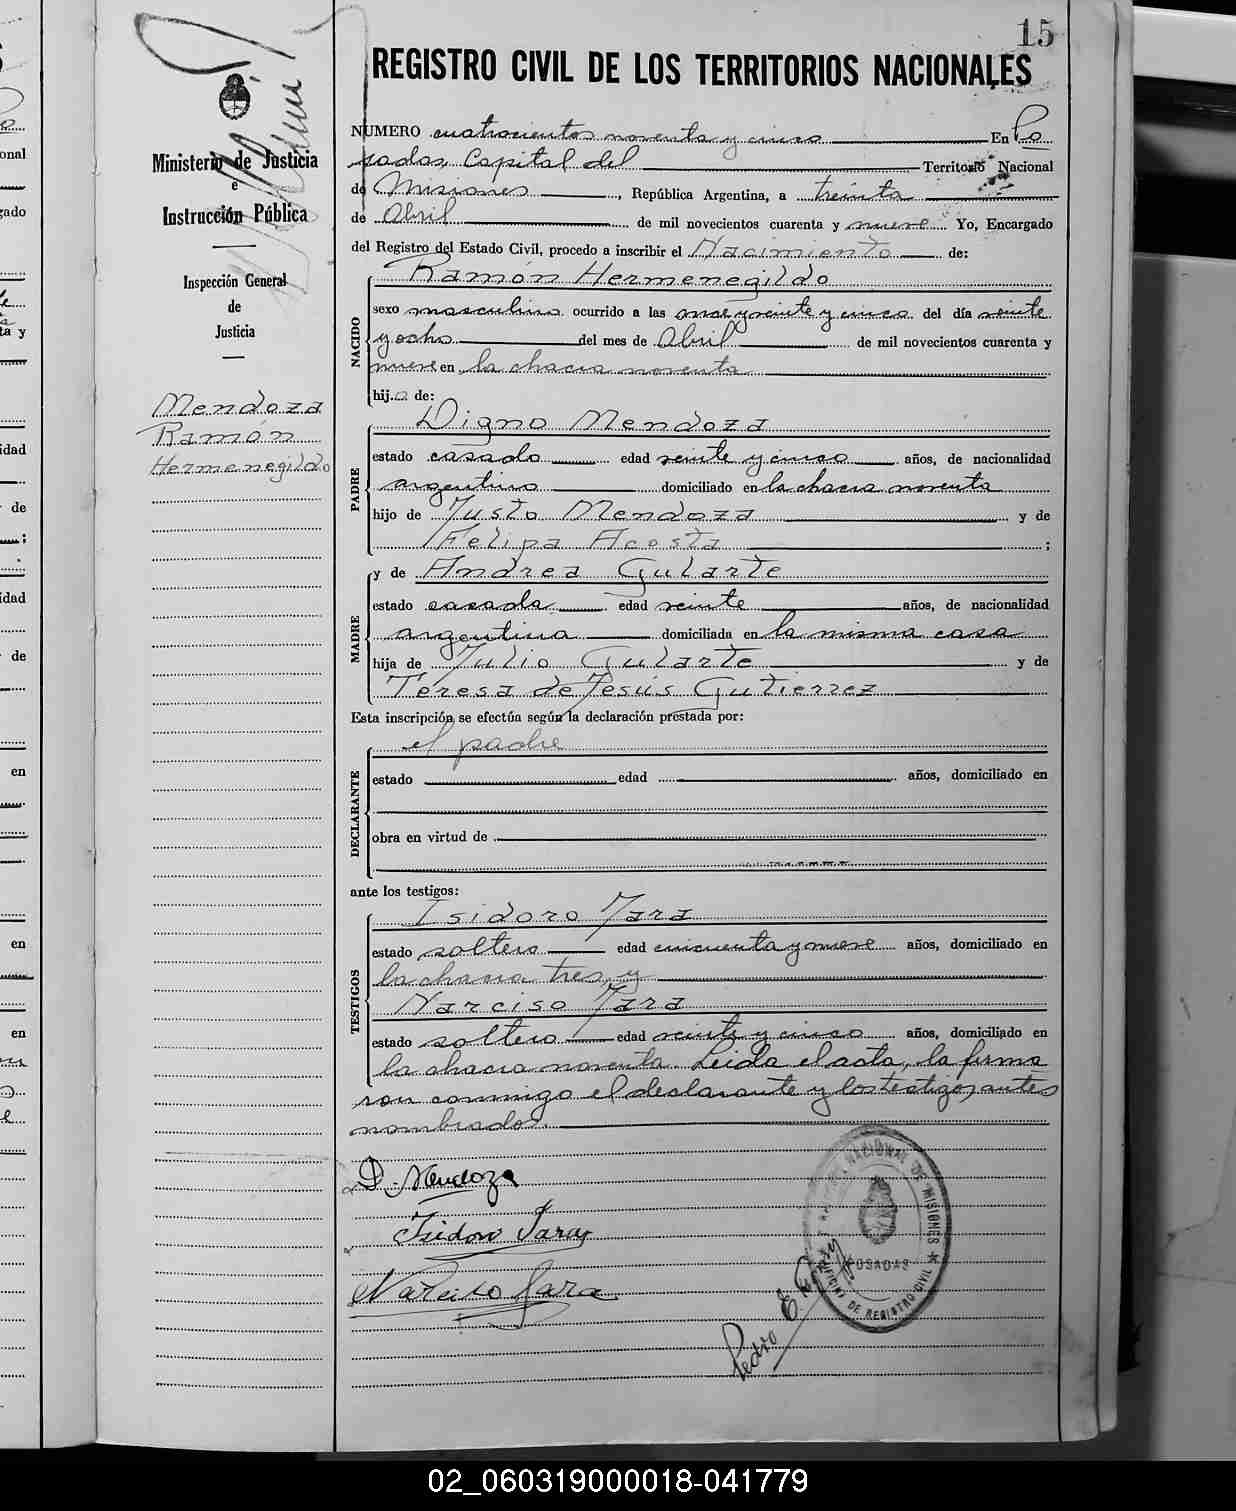 15
REGISTRO CIVIL DE LOS TERRITORIOS NACIONALES
Ministerio de Justicia
e
Instrucción Pública
Inspección General
de
Justicia
Mendoza
Ramón
Hermenegildo
NUMERO cuatrocientos noventa y cinco En Po
sadas, Capital del Territorio Nacional
de Misiones, República Argentina, a treinta
de Abril de mil novecientos cuarenta y nueve Yo, Encargado
del Registro del Estado Civil, procedo a inscribir el Nacimiento de:
NACIDO
Ramón Hermenegildo
sexo masculino ocurrido a las once y veinte y cinco del día veinte
y ocho del mes de Abril de mil novecientos cuarenta y
nueve en la chacra noventa
hij.o de:
PADRE
Digno Mendoza
estado casado edad veinte y cinco años, de nacionalidad
argentino domiciliado en la chacra noventa
hijo de Justo Mendoza y de
Felipa Acosta ;
MADRE
y de Andrea Gularte
estado casada edad veinte años, de nacionalidad
argentina domiciliada en la misma casa
hija de Julio Gularte y de
Teresa de Jesús Gutierrez
Esta inscripción se efectúa según la declaración prestada por:
DECLARANTE
el padre
estado edad años, domiciliado en
obra en virtud de
ante los testigos:
TESTIGOS
Isidoro Jara
estado soltero edad cincuenta y nueve años, domiciliado en
la chacra tres, y
Narciso Jara
estado soltero edad veinte y cinco años, domiciliado en
la chacra noventa. Leida el acta, la firma
ron conmigo el declarante y los testigos antes
nombrados.
D. Mendoza
Isidoro Jara
Narciso Jara
Pedro E.
NACIONAL DE MISIONES
POSADAS
OFICINA DE REGISTRO CIVIL
02_060319000018-041779